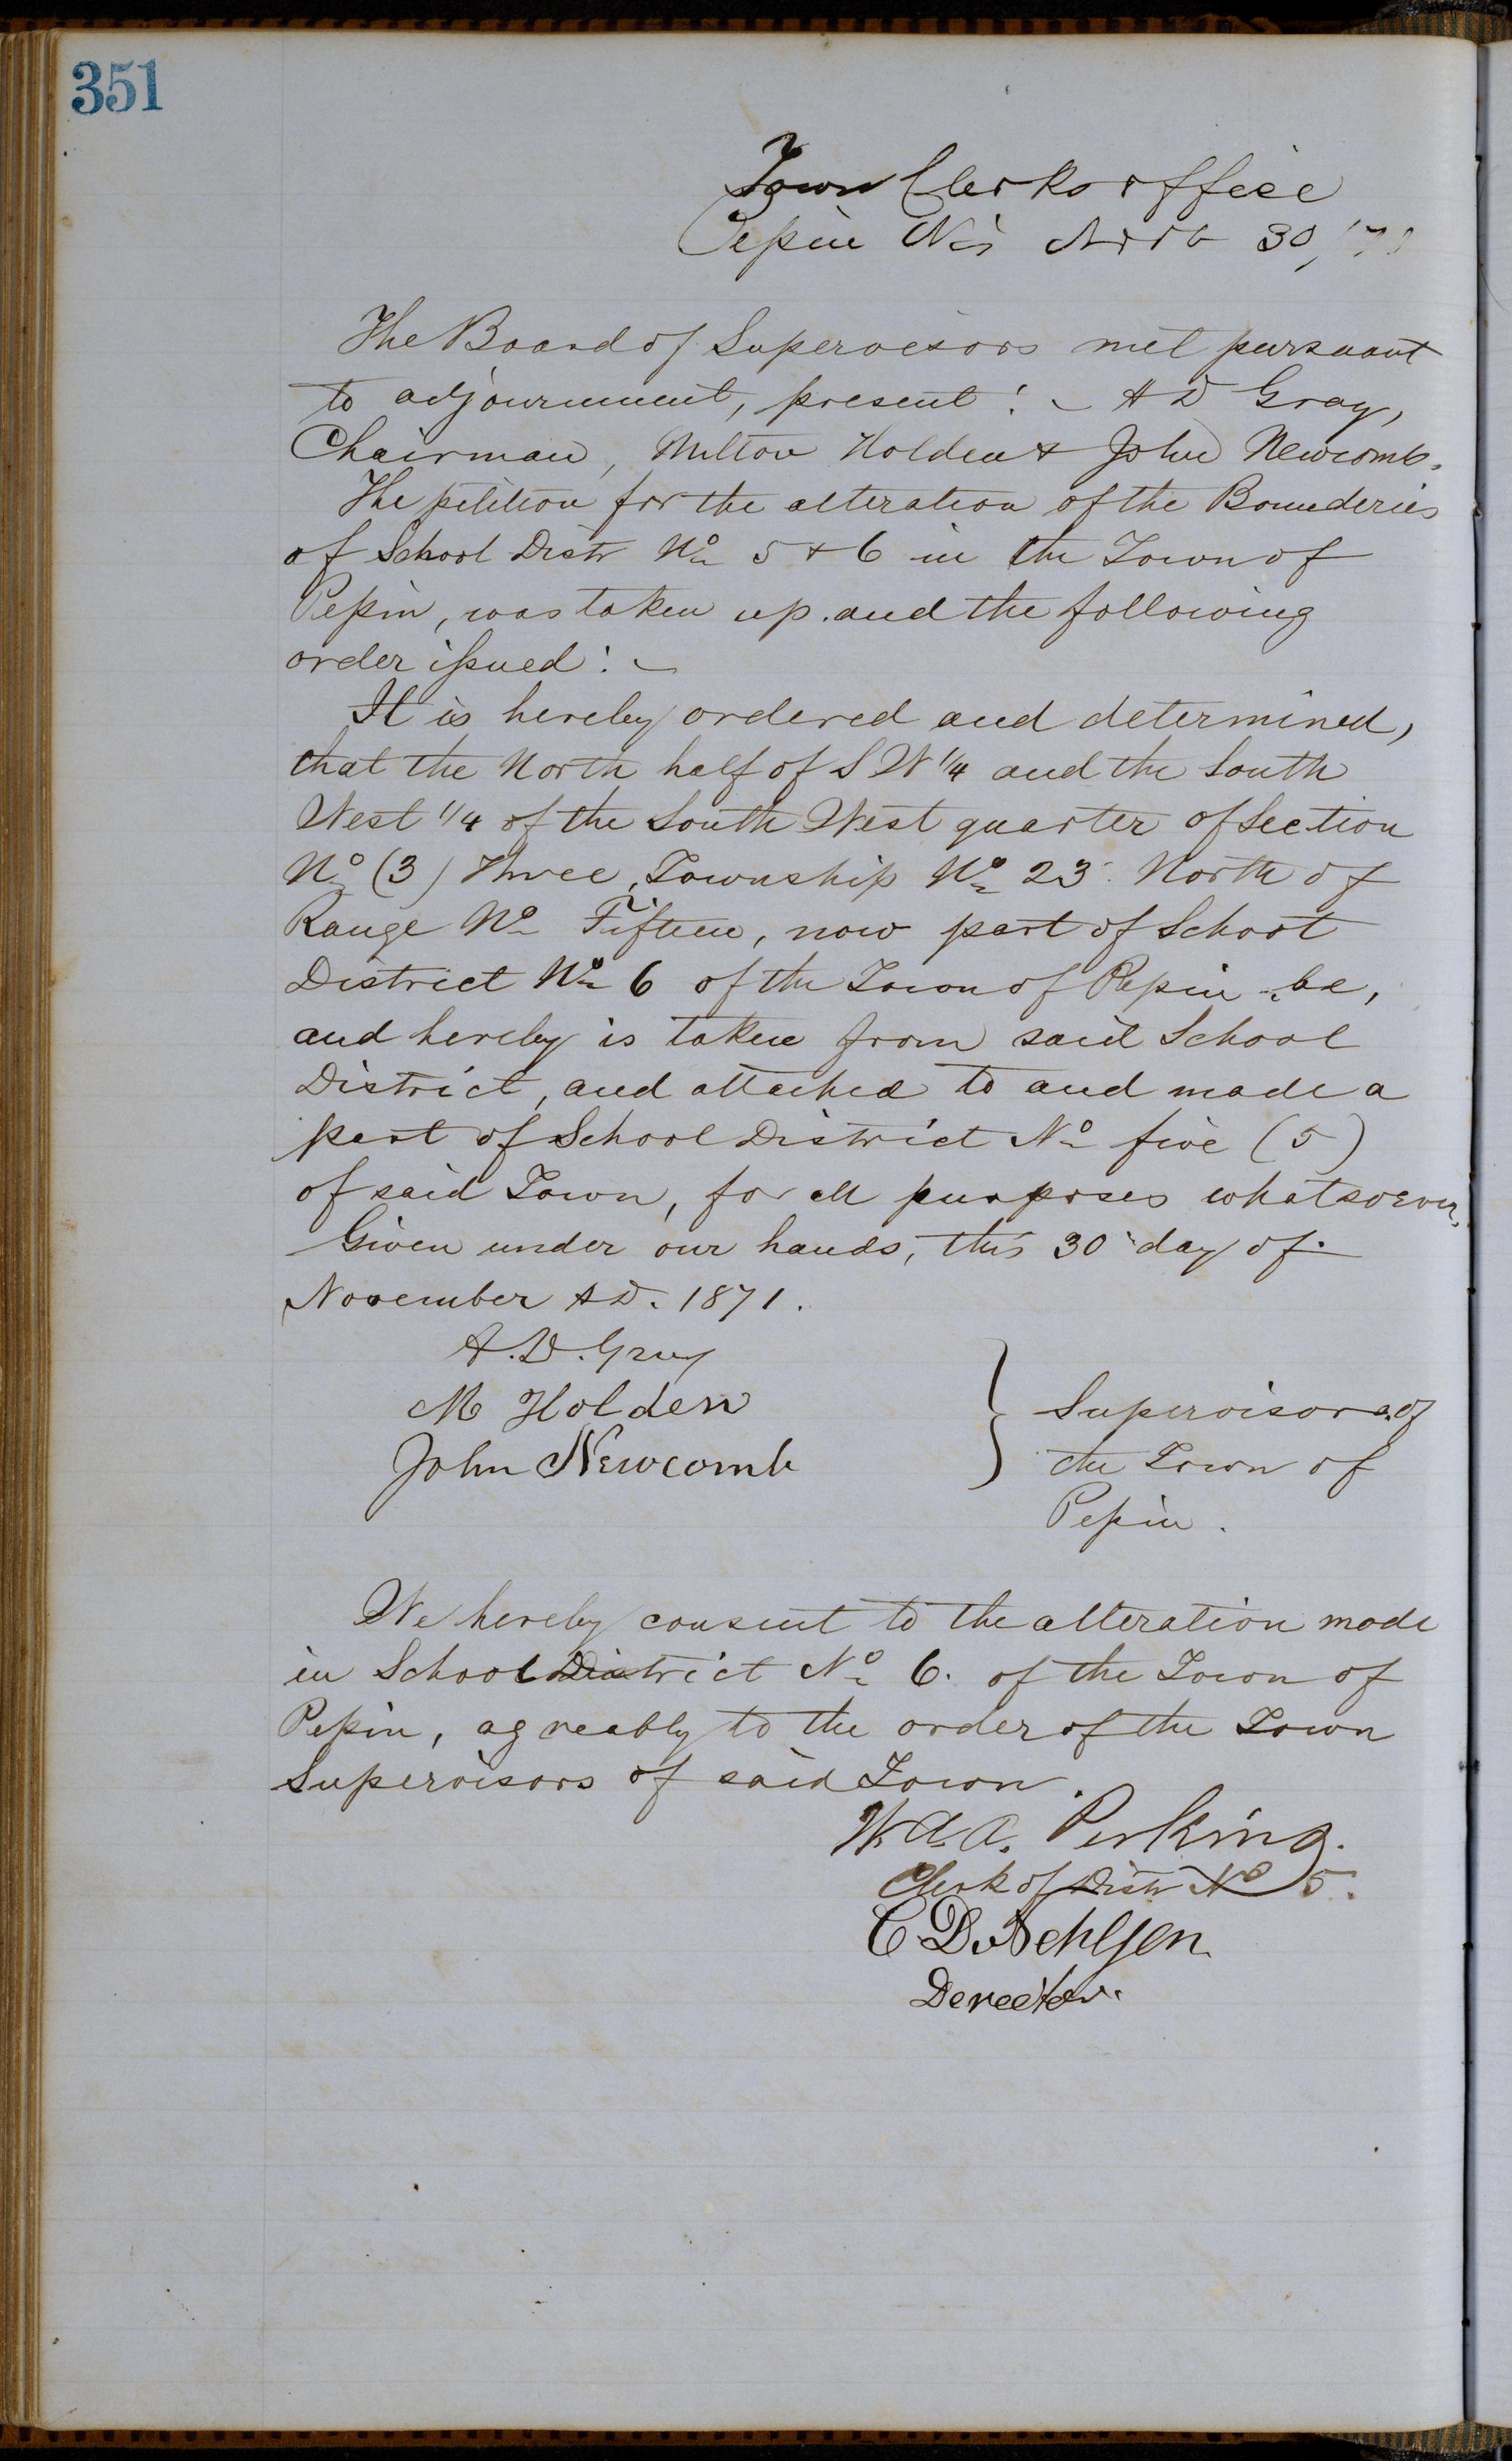 351
Town Clerks office
Pepin Wis Novb 30, '71
The Board of Supervisors met pursuant
to adjournment, present: - A D Gray,
Chairman, Milton Holden & John Newcomb.
The petition for the alteration of the Bounderies
of School Distr No 5 & 6 in the Town of
Pepin, was taken up. and the following
order issued: -
It is hereby ordered and determined,
that the North half of S W 1/4 and the South
West 1/4 of the South West quarter of Section
No (3) Three, Township No 23 North of
Range No Fifteen, now part of School
District No 6 of the Town of Pepin - be,
and hereby is taken from said School
District, and attached to and made a
part of School District No five (5)
of said Town, for all purposes whatsoever,
Given under our hands, this 30 day of
November A D. 1871.
A. D. Gray
M Holden
John Newcomb
Supervisors of
the Town of
Pepin.
We hereby consent to the alteration made
in School District No 6. of the Town of
Pepin, agreably to the order of the Town
Supervisors of said Town.
Perkins.
Clerk of Distr No 5.
Derector.